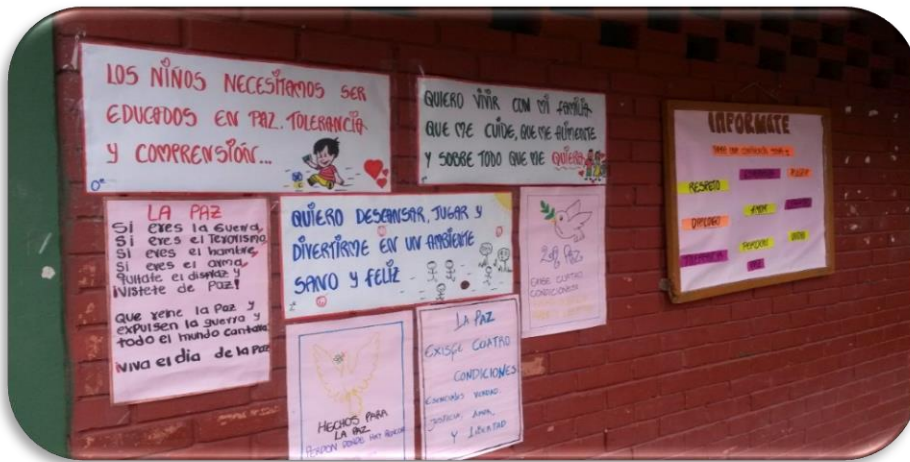 LOS NIÑOS NECESITAMOS SER
EDUCADOS EN PAZ. TOLERANCIA
Y COMPRENSIÓN...
QUIERO VIVIR CON MI FAMILIA
QUE ME CUIDE, QUE ME ALIMENTE
Y SOBRE TODO QUE ME QUIERA
LA PAZ
Si eres la Guerra,
Si eres el Terorismo
Si eres el hambre,
Si eres el arma,
Quitate el disfraz y
Vistete de Paz!
Que reine la Paz y
expulsen la guerra y
todo el mundo cantara
Viva el dia de la Paz
QUIERO DESCANSAR, JUGAR Y
DIVERTIRME EN UN AMBIENTE
SANO Y FELIZ
La Paz
EXIGE CUATRO
CONDICIONES
HECHOS PARA
LA PAZ
PERDON DONDE HAY
LA PAZ
EXISGE CUATRO
CONDICIONES
ESENCIALES VERDAD.
JUSTICIA, AMOR,
Y LIBERTAD
INFORMATE
RESPETO
DIALOGO
AMOR
PERDON
PAZ